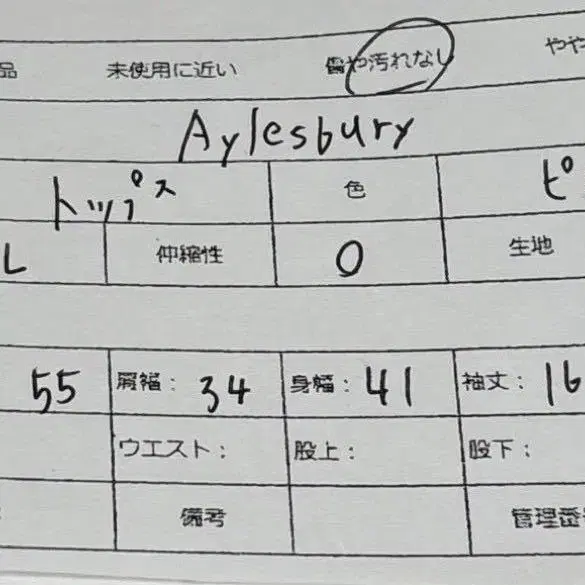 品 未使用に近い 傷や汚れなし やや
Aylesbury
トップス 色 ピ
L 伸縮性 0 生地
55 肩幅： 34 身幅： 41 袖丈： 16
ウエスト： 股上： 股下：
備考 管理番号